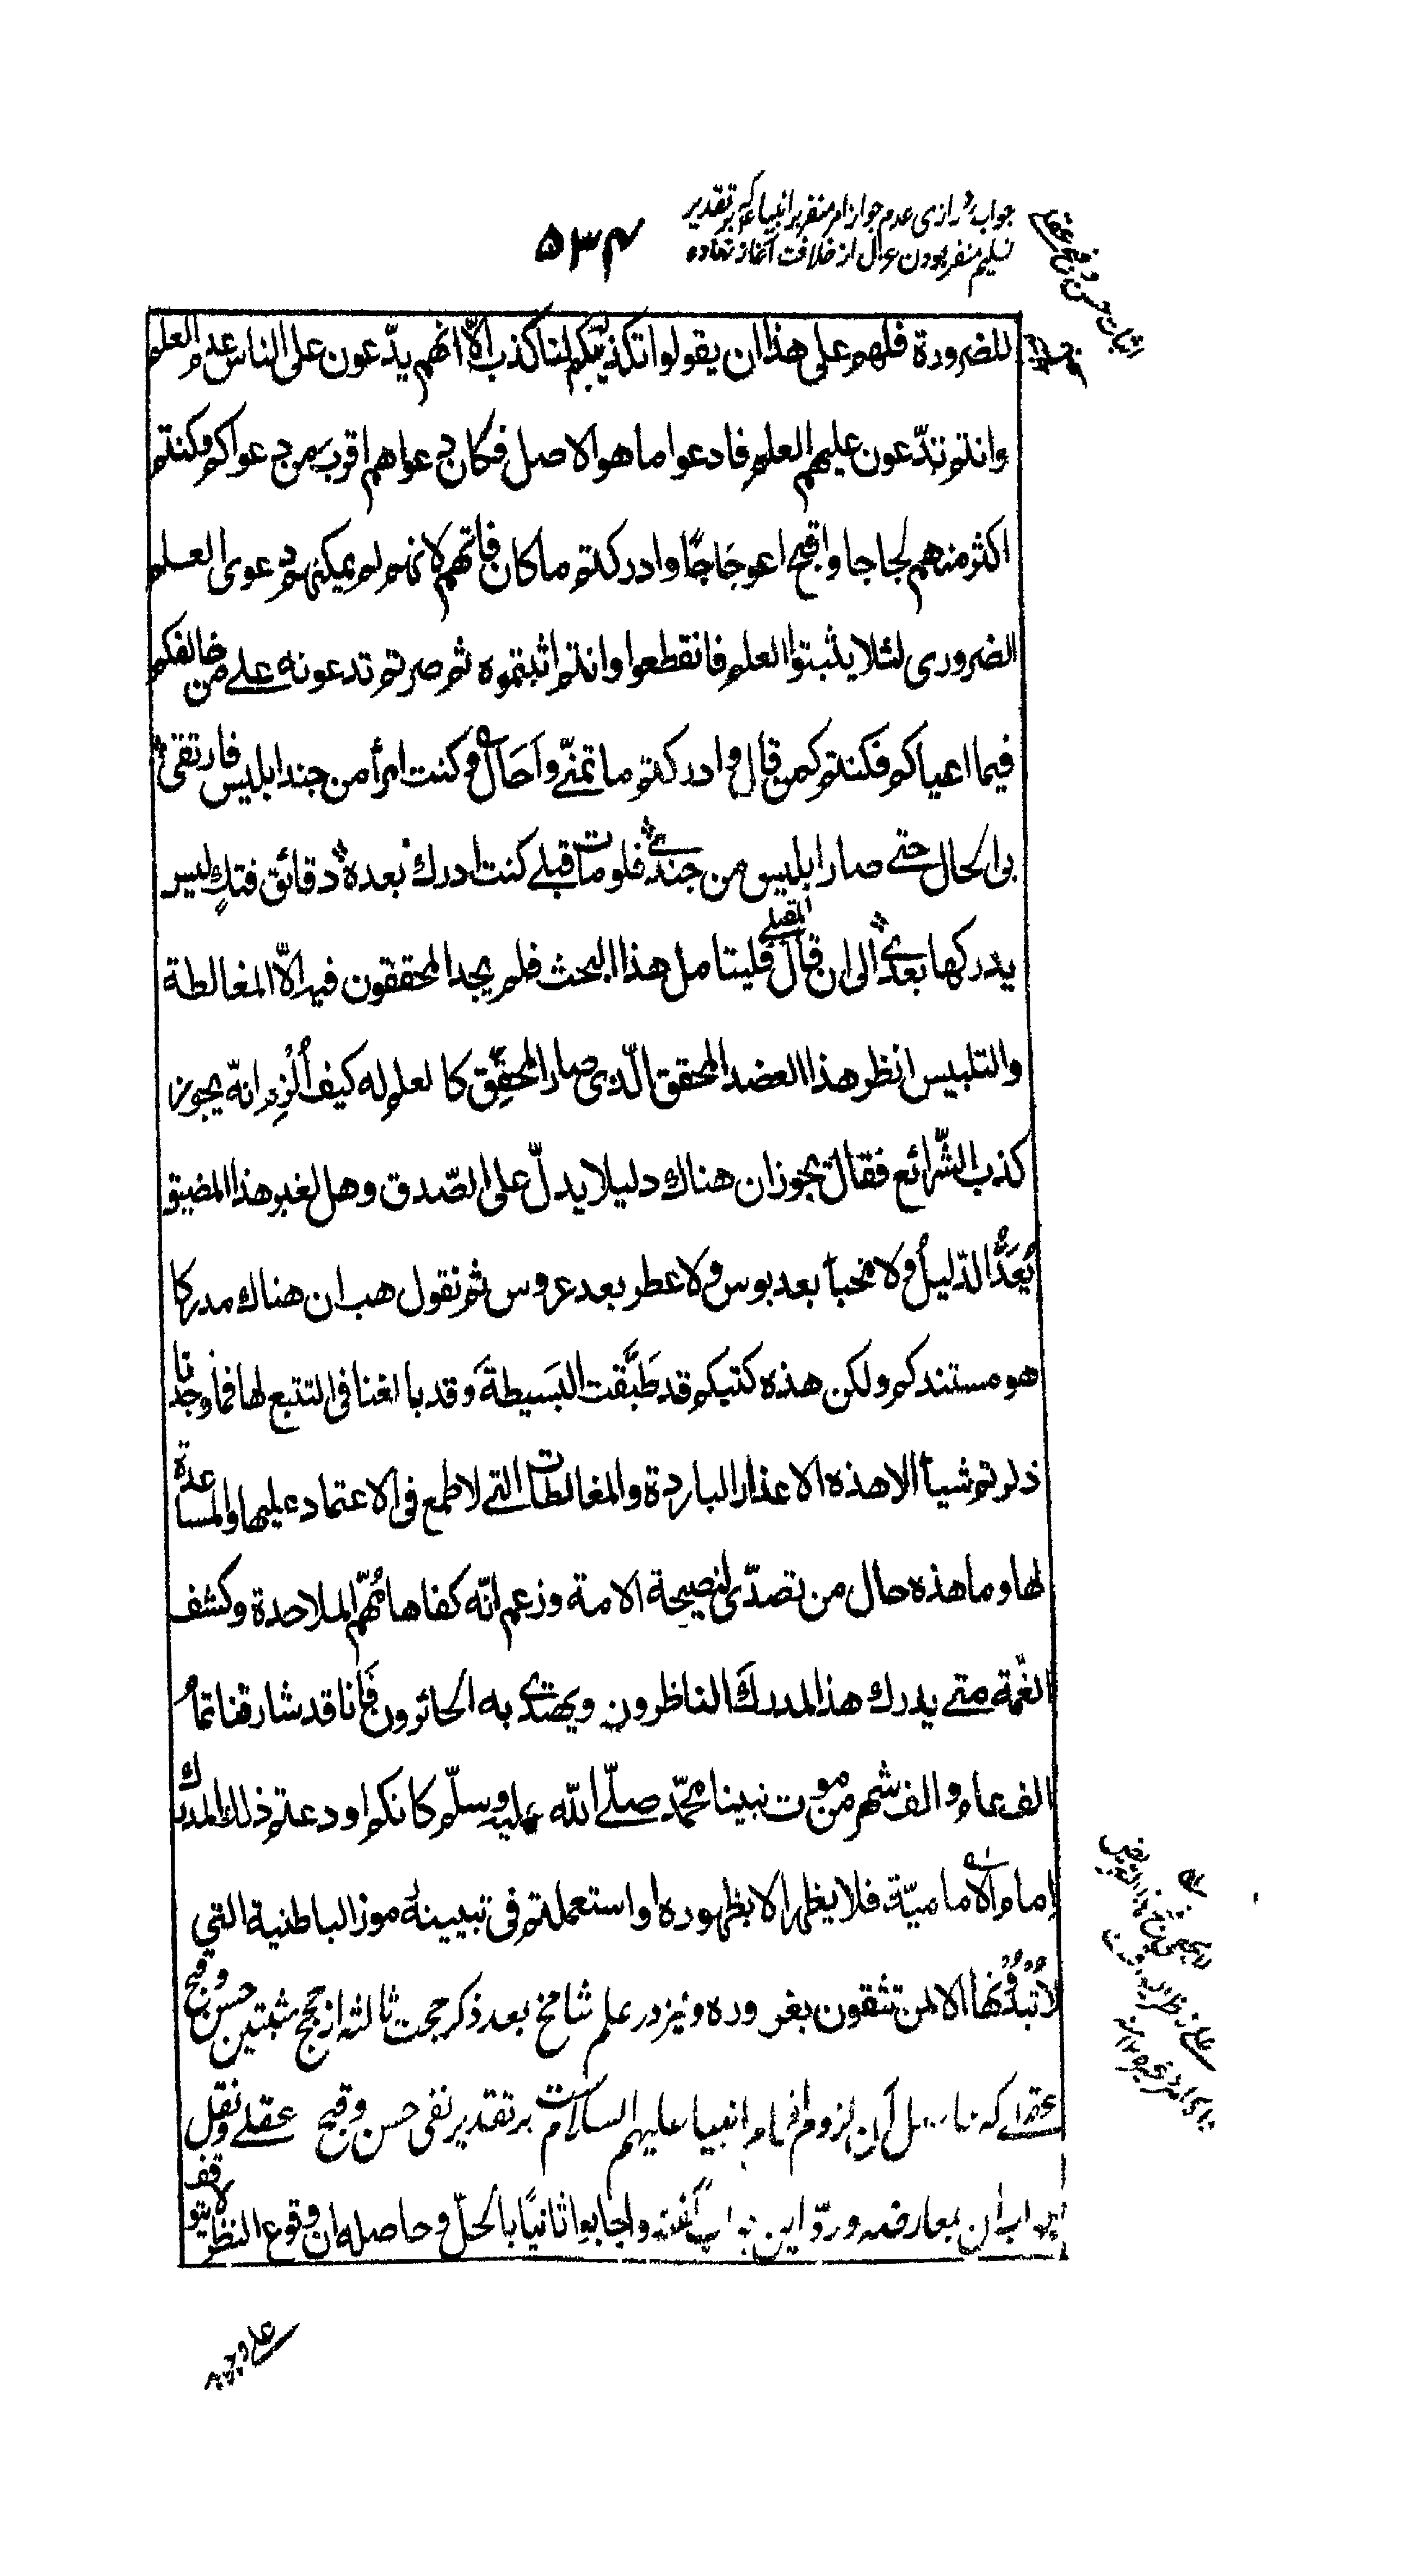 جواب رازی عدم جواز امر منفر بر انبیا که بر تقدیر
تسلیم منفر بودن عزل از خلافت آغاز نهاده
۵۳۴
اثبات حسن و قبح عقلی
للضرورة فلهم على هذا ان يقولوا تكذيبكم لنا كذب الّا انّهم يدّعون على الناس عدم العلم
وانتم تدّعون عليهم العلم فادعوا ما هو الاصل فكان دعواهم اقرب من دعواكم وكنتم
اكثر منهم لجاجا واقبح اعوجاجًا وادركتم ما كان فاتهم لانهم لم يمكنهم دعوى العلم
الضرورى لئلا يثبتوا العلم فانقطعوا وانتم اثبتموه ثم صرتم تدعونه على من خالفكم
فيما اعياكم فكنتم كمن قال وادركتم ما تمنّى وآحال وكنت امرأ من جند ابليس فارتقى
بى الحال حتى صار ابليس من جندى فلو مات قبلى كنت ادرك بعده دقائق فتك ليس
يدركها بعدى الى ان قال المقبلى فليتامل هذا البحث فلم يجد المحققون فيه الّا المغالطة
والتلبيس انظر هذا العضد المحقق الّذى صار المحقّق كالعلم له كيف اُلْزِم انّه يجوز
كذب الشّرائع فقال يجوز ان هناك دليلا يدلّ على الصّدق وهل لغير هذا المضيق
يُعَدُّ الدّليلُ ولا مخبأ بعد بوس ولا عطر بعد عروس ثم نقول هب ان هناك مدركا
هو مستندكم ولكن هذه كتبكم قد طَبَّقت البَسيطةَ وقد بالغنا فى التتبع لها فما وجدنا
ذكرتم شيأ الا هذه الاعذار الباردة والمغالطات التى لا طمع فى الاعتماد عليها والمساعدة
لها وما هذه حال من تصدّى لنصيحة الامة وزعم انّه كفاها مُهِمّ الملاحدة وكشف
الغمّة متى يدرك هذا المدركَ الناظرون ويهتدى به الحائرون فَانا قد شارفنا تمامُ
الف عام والف شهر من موت نبينا محمّد صلّى الله عليه وسلّم كانكم اودعتم ذلك المدرك
إمام الاماميّة فلا يظهر الا بظهوره او استعملتم فى تبيينه رموز الباطنية التي
لا تُبْدُونَها الا لمن تثقون بغروره ونيز در علم شامخ بعد ذكر حجت ثالثه از حجج مثبتين حسن وقبح
عقلى كه حاصل آن لزوم افحام انبيا عليهم السلام است بر تقدير نفى حسن وقبح عقلى ونقل
جواب ان بمعارضه وردّ اين جواب گفته واجابوا ثانيًا بالحلّ وحاصله ان وقوع النظر لا يتوقف
على وجوبه